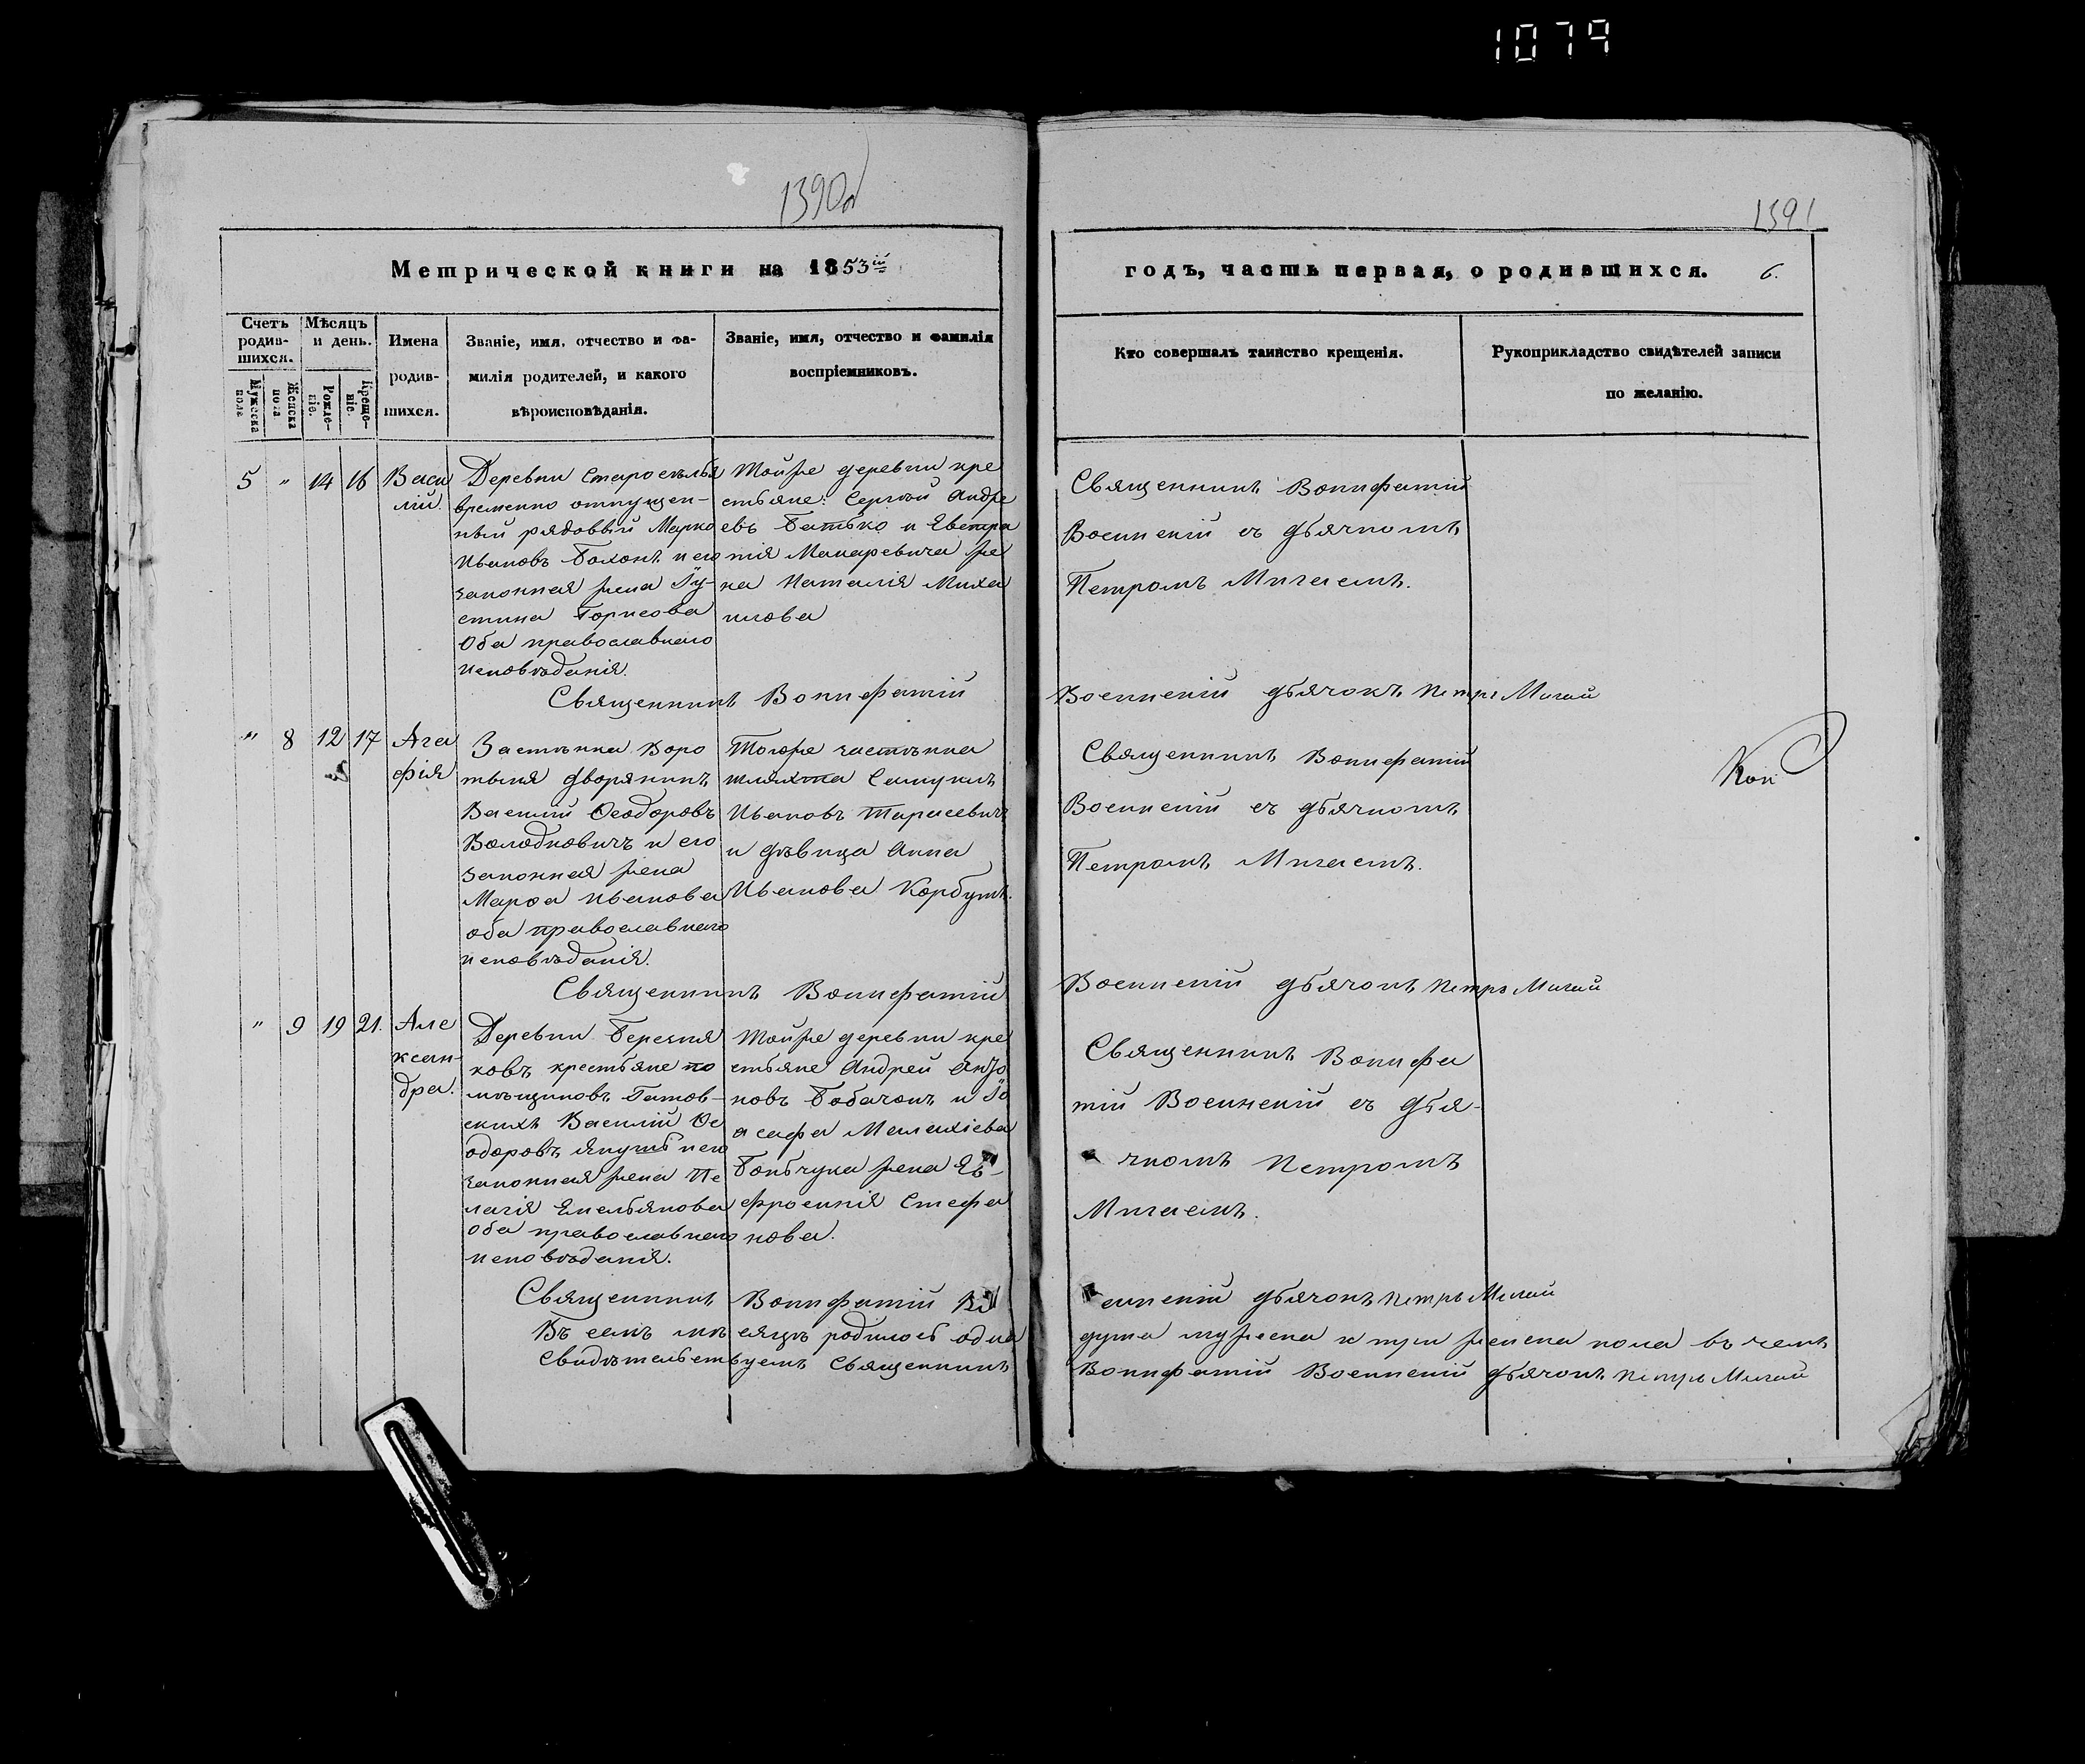 1079
1390
1391
Метрической книги на 1853ій
годъ, часть первая, о родившихся. 6.
Счетъ родив-шихся.
Мужеска пола
Женска пола
Мѣсяцъ и день.
Рожде-ніе.
Креще-ніе.
Имена родив-шихся.
Званіе, имя, отчество и фа-
милія родителей, и какого
вѣроисповѣданія.
Званіе, имя, отчество и фамилія
воспріемниковъ.
Кто совершалъ таинство крещенія.
Рукоприкладство свидѣтелей записи
по желанію.
5 " 14 16
Васи
лій.
Деревни Староселья
временно отпущен-
ный рядовый Марко
Ивановъ и его
законная жена Іу-
стина Борисова
Оба православнаго
исповѣданія.
Тойже деревни кре
стьяне: Сергѣй Андре
евъ Батько и
тія Макаревича же
на Наталія Миха
илова
Священникъ Вонифатій
Воеинскій съ дьячкомъ
Петромъ Мигаемъ.
Священникъ Вонифатій
дьячокъ Петръ Мигай
" 8 12 17
Ага
фія
Застѣнка Воро
тыня дворянинъ
Василій Ѳеодоровъ
Володковичъ и его
законная жена
Марѳа Иванова
оба православнаго
исповѣданія.
Тогоже застѣнка
шляхта Самуилъ
Ивановъ Тарасевичъ
и дѣвица Анна
Иванова Корбутъ.
Священникъ Вонифатій
съ дьячкомъ
Петромъ Мигаемъ.
Коп
Священникъ Вонифатій
дьячокъ Петръ Мигай
" 9 19 21.
Але
ксан-
дра.
Деревни Березня
ковъ крестьяне по
мѣщиковъ Гатов-
скихъ Василій Ѳе
одоровъ Якушъ и его
законная жена Пе
лагія Емельянова
оба православнаго
исповѣданія.
Тойже деревни кре
стьяне Андрей Анто
новъ Бобачокъ и Іо
асафа Малахіева
жена Ев-
фросинія Стефа
нова.
Священникъ Вонифа
тій съ дья-
чкомъ Петромъ
Мигаемъ.
Священникъ Вонифатій
дьячокъ Петръ Мигай
Въ семъ мѣсяцѣ родилось одна
душа мужеска и три женска пола въ чемъ
Свидѣтельствуемъ Священникъ
Вонифатій дьячокъ Петръ Мигай